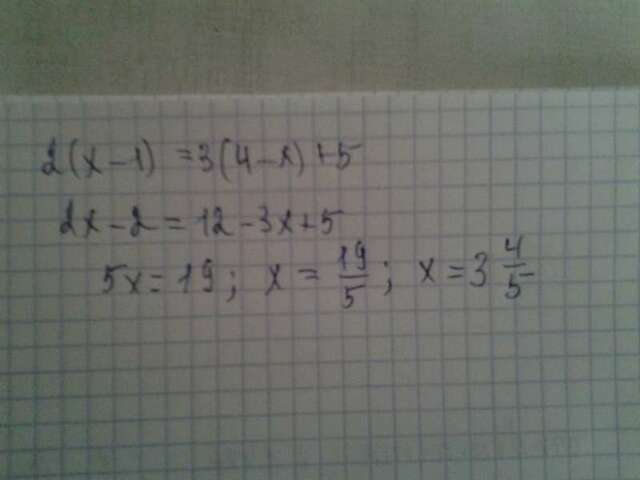 2(x-1) = 3(4-x)+5
2x-2 = 12-3x+5
5x = 19; x = 19/5; x = 3 4/5